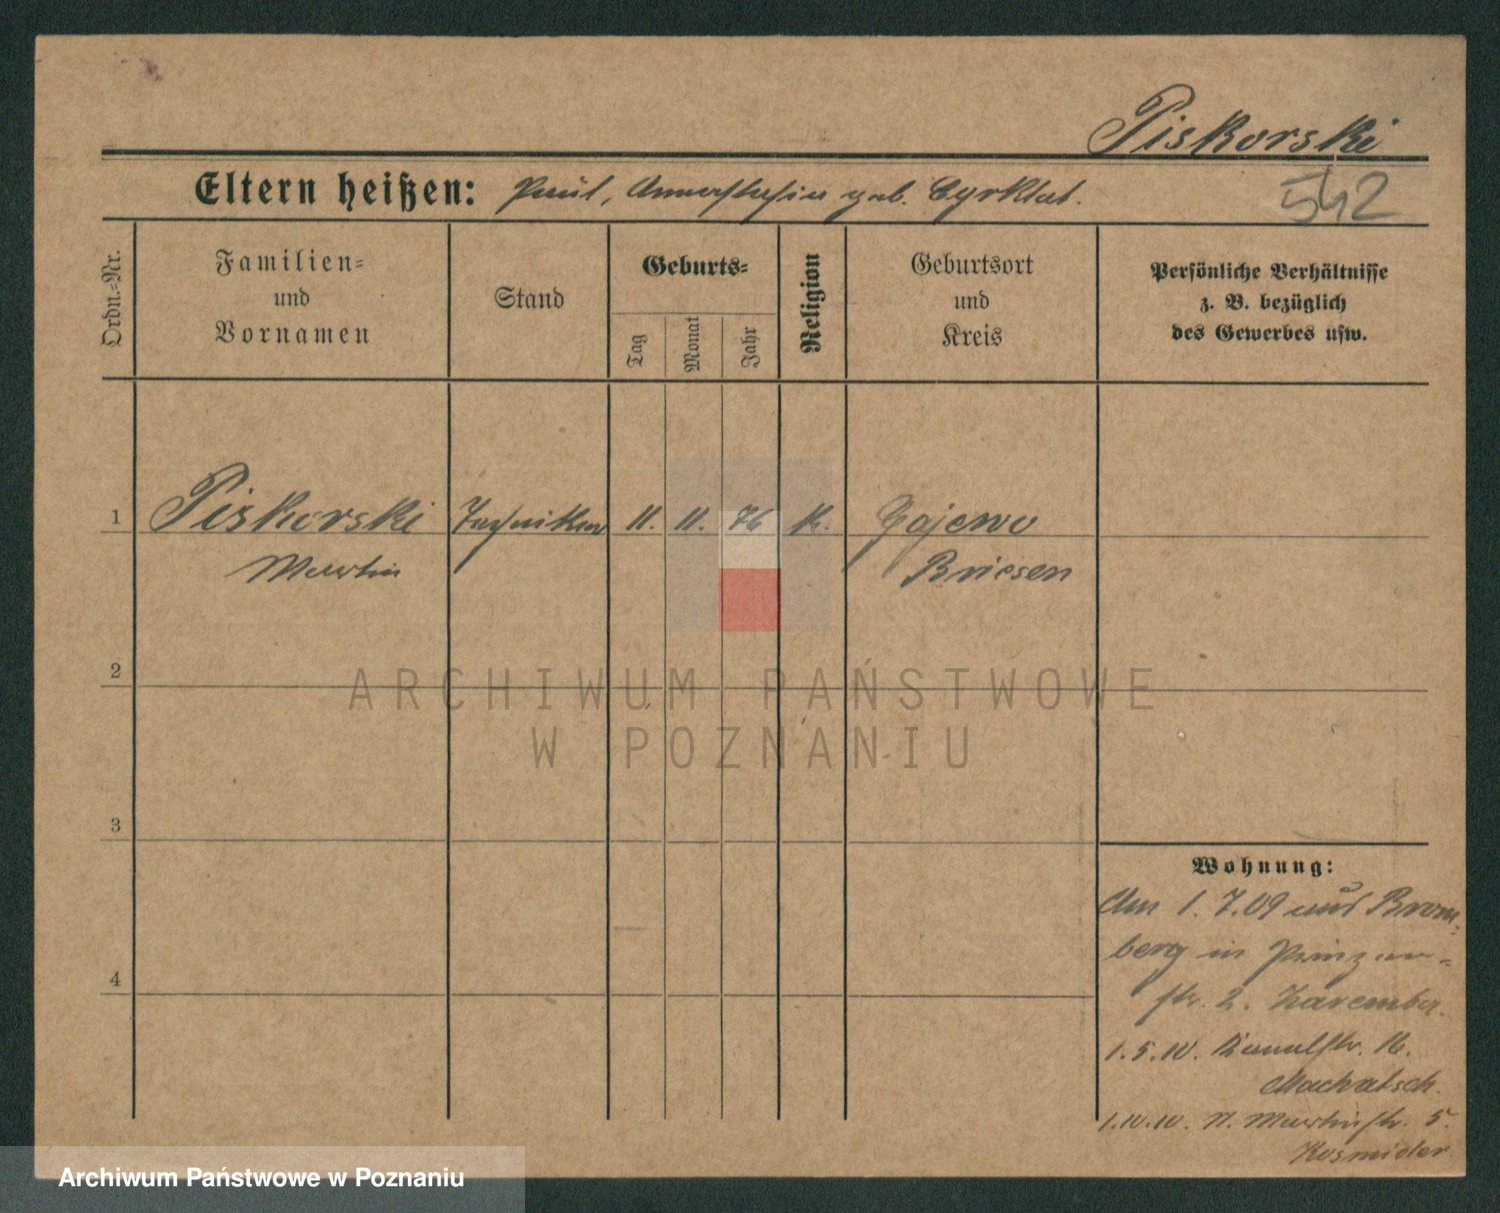 Piskorski
542
Eltern heißen: Paul, Annastasia geb. Cyrklat.
Ordn.-Nr.
Familien-
und
Vornamen
Stand
Geburts-
Tag
Monat
Jahr
Religion
Geburtsort
und
Kreis
Persönliche Verhältnisse
z. B. bezüglich
des Gewerbes usw.
1 Piskorski Techniker 11. 11. 76 k. Gajewo
Martin Briesen
2
ARCHIWUM PAŃSTWOWE
W POZNANIU
3
4
Wohnung:
Am 1.7.09 aus Brom-
berg in Prinzen-
str. 2. Zaremba.
1.5.10. Kanalstr. 16.
Machatsch.
1.10.10. St. Martinstr. 5.
Kosmider.
Archiwum Państwowe w Poznaniu